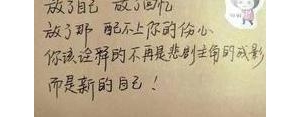 放了自己 放了回忆
放了那 配不上你的伤心
你该诠释的不再是悲剧主角的戏影
而是新的自己！